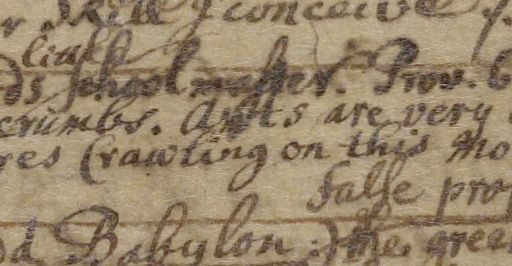 I conceive
little
ds schoolmaster. Prov. 6
crumbs. Ants are very
res Crawling on this mo
false prop
d Babylon: the, gree